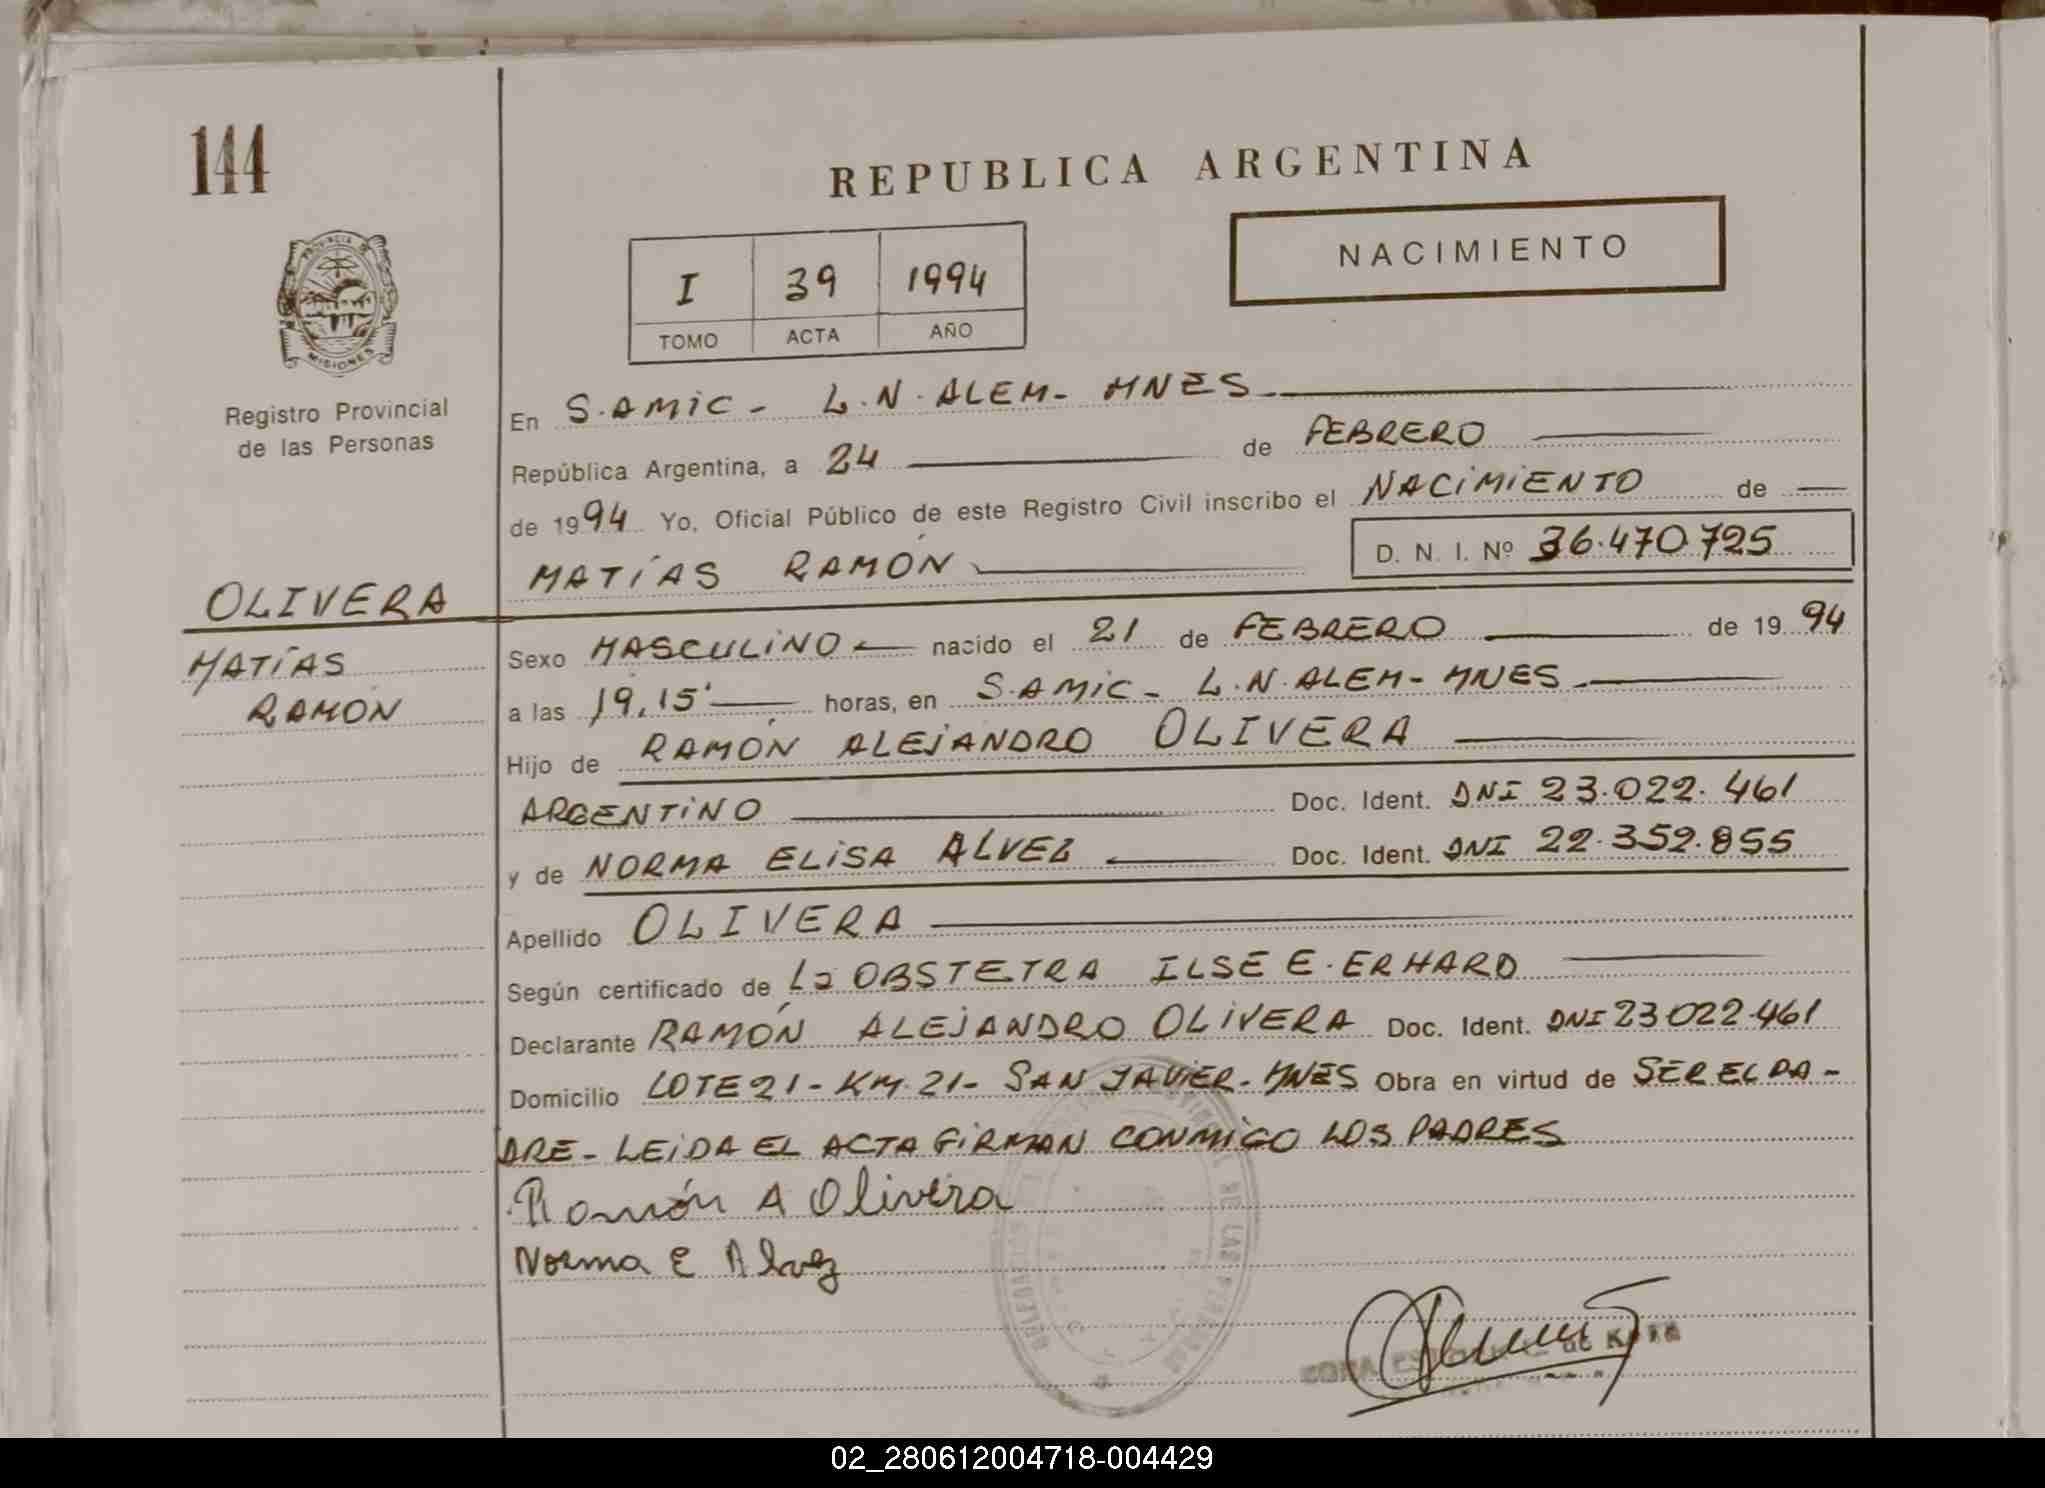 144
REPUBLICA ARGENTINA
NACIMIENTO
I 39 1994
TOMO ACTA AÑO
PROVINCIA DE
MISIONES
Registro Provincial
de las Personas
En S.AMIC - L.N.ALEM - MNES
República Argentina, a 24 de FEBRERO
de 1994 Yo, Oficial Público de este Registro Civil inscribo el NACIMIENTO de
MATÍAS RAMÓN D. N. I. Nº 36.470.725
OLIVERA
MATÍAS
RAMÓN
Sexo MASCULINO nacido el 21 de FEBRERO de 1994
a las 19,15' horas, en S.AMIC - L.N.ALEM - MNES
Hijo de RAMÓN ALEJANDRO OLIVERA
ARGENTINO Doc. Ident. DNI 23.022.461
y de NORMA ELISA ALVEZ Doc. Ident. DNI 22.352.855
Apellido OLIVERA
Según certificado de La OBSTETRA ILSE E. ERHARD
Declarante RAMÓN ALEJANDRO OLIVERA Doc. Ident. DNI 23022.461
Domicilio LOTE 21 - KM. 21 - SAN JAVIER - MNES Obra en virtud de SER EL PA-
DRE - LEIDA EL ACTA FIRMAN CONMIGO LOS PADRES
Ramón A Olivera
Norma E Alvez
DE LAS
02_280612004718-004429